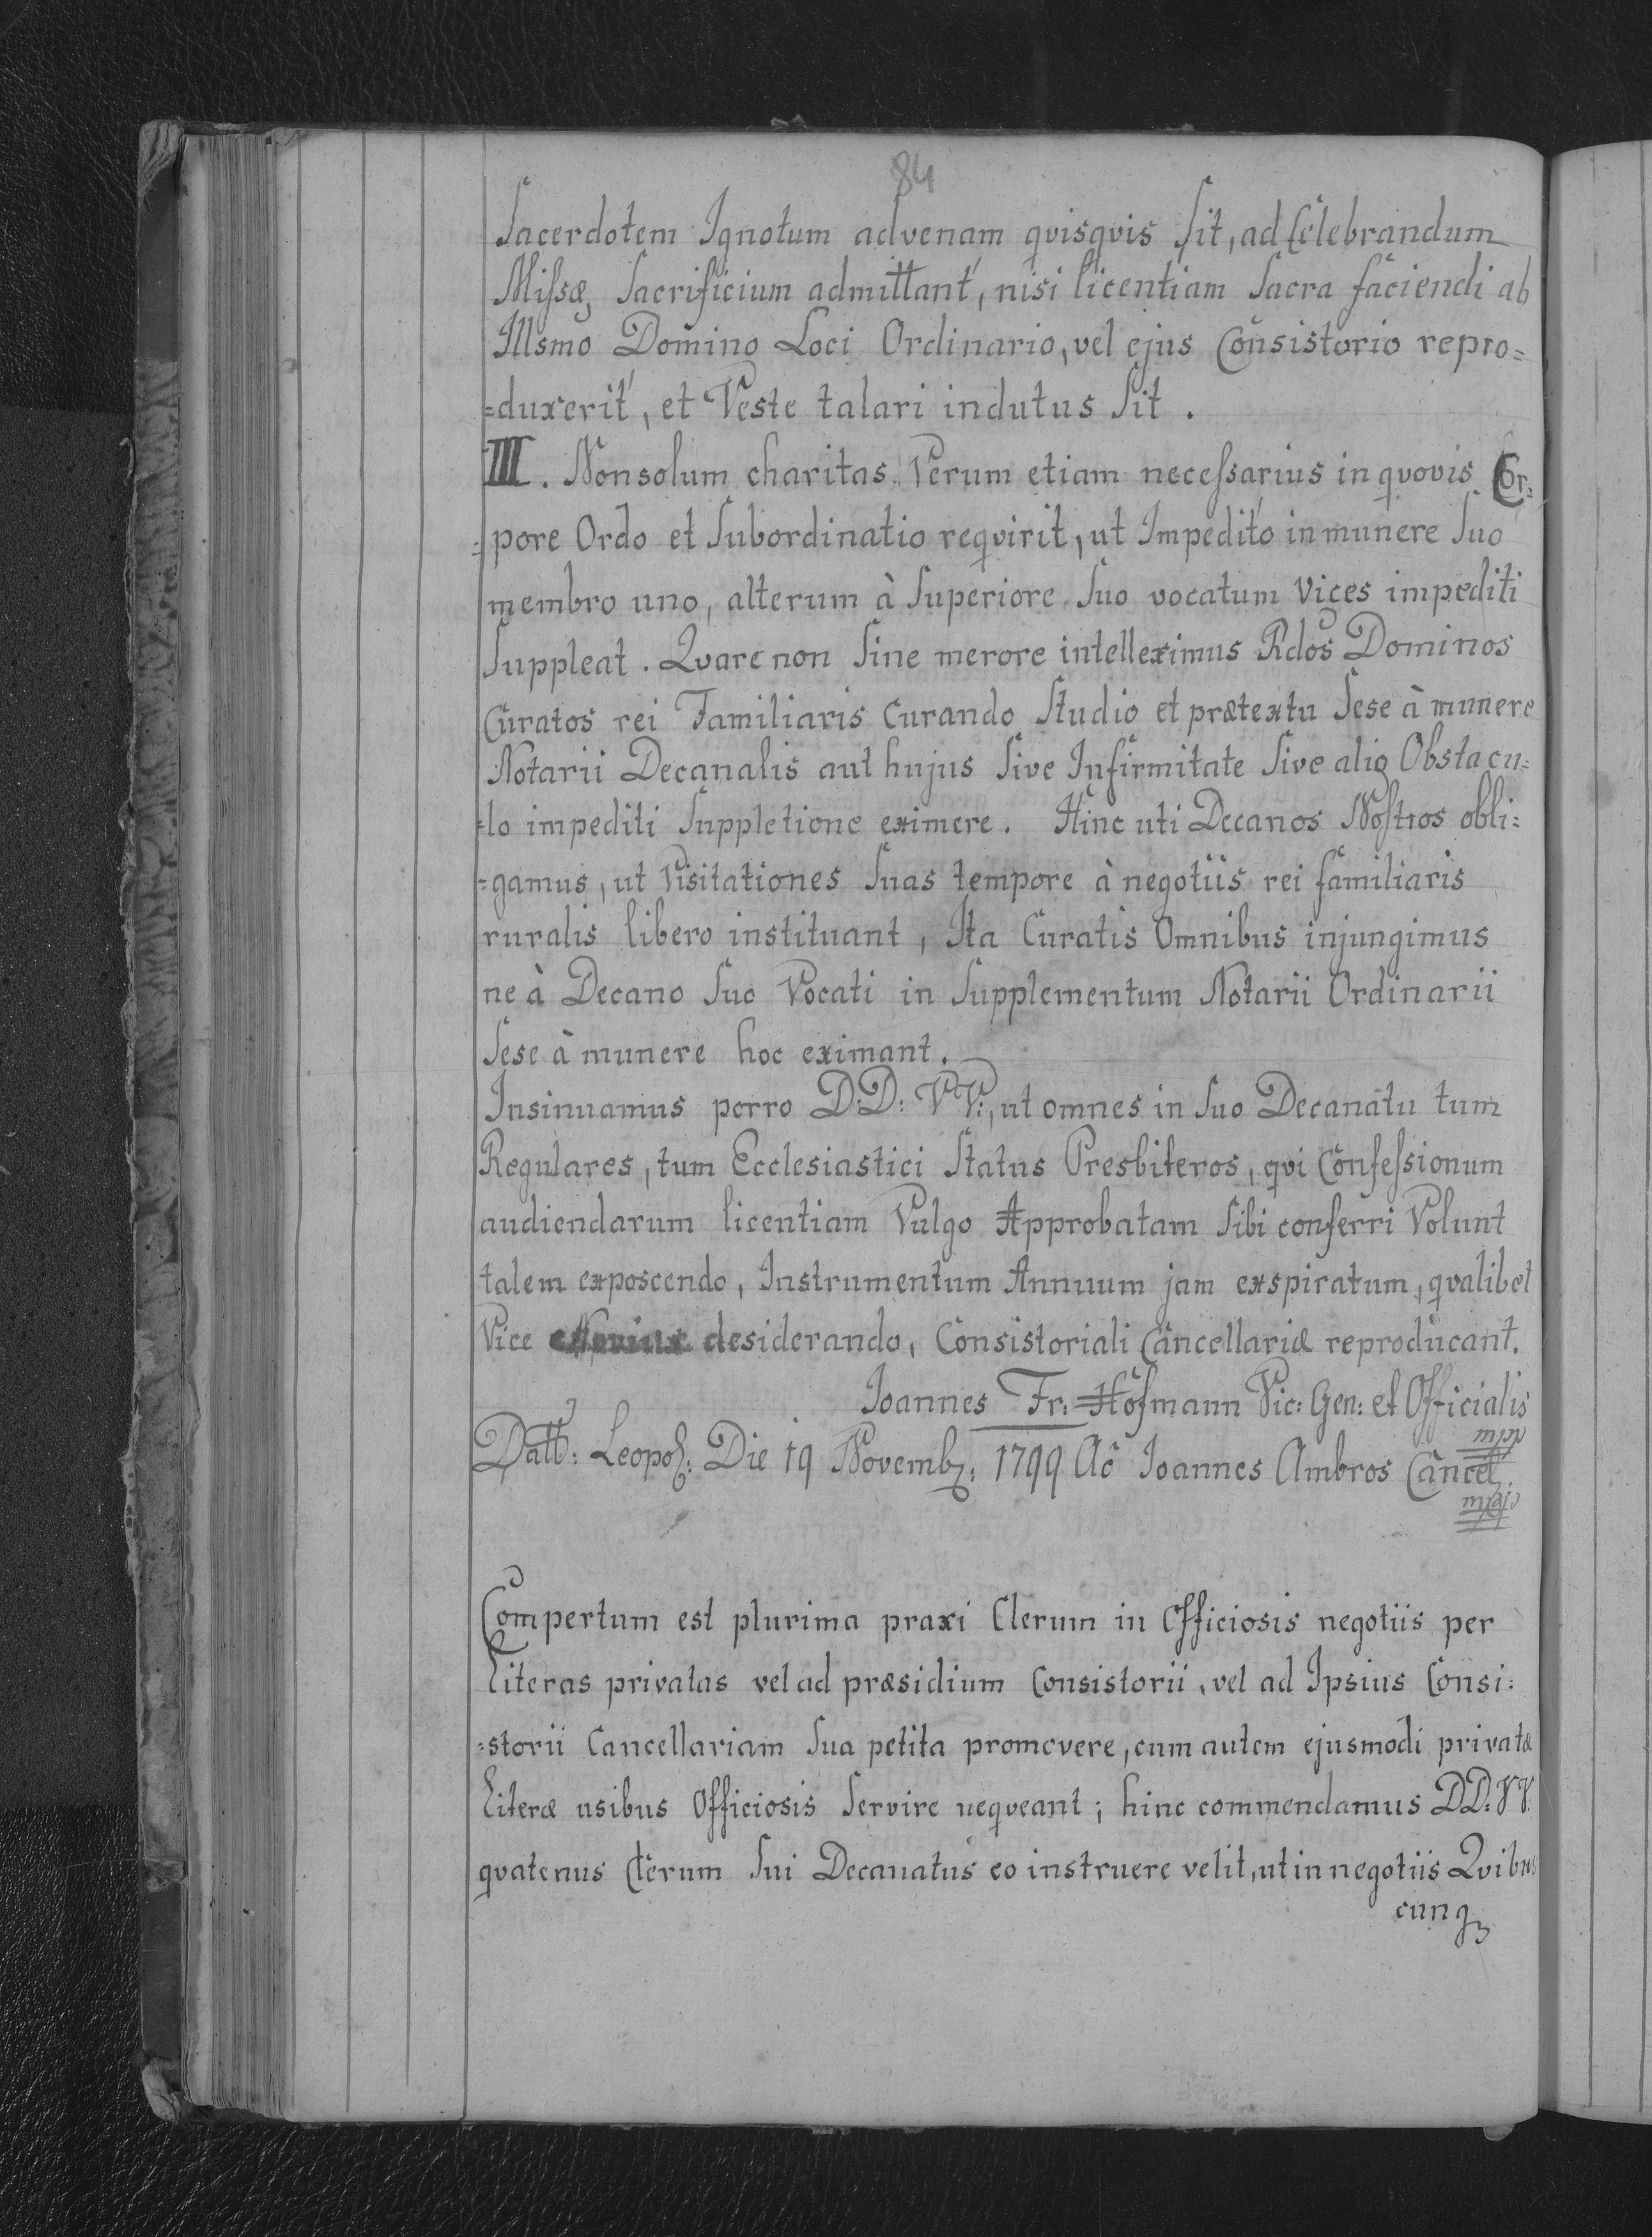 84
Sacerdotem Ignotum advenam qvisqvis Sit, ad Celebrandum
Missæ Sacrificium admittant, nisi licentiam Sacra faciendi ab
Illsmo Domino Loci Ordinario, vel ejus Consistorio repro=
=duxerit, et Veste talari indutus Sit.
III. Nonsolum charitas Verum etiam necessarius in qvovis Cor=
=pore Ordo et Subordinatio reqvirit, ut Impedito in munere Suo
membro uno, alterum à Superiore Suo vocatum Vices impediti
Suppleat. Qvare non Sine merore intelleximus Rdos Dominos
Curatos rei Familiaris Curando Studio et prætextu Sese à munere
Notarii Decanalis aut hujus Sive Infirmitate Sive alio Obstacu=
=lo impediti Suppletione eximere. Hinc uti Decanos Nostros obli=
=gamus, ut Visitationes Suas tempore à negotiis rei familiaris
ruralis libero instituant, Ita Curatis Omnibus injungimus
ne à Decano Suo Vocati in Supplementum Notarii Ordinarii
Sese à munere hoc eximant.
Insinuamus porro D:D: VV:, ut omnes in Suo Decanatu tum
Regulares, tum Ecclesiastici Status Presbiteros, qvi Confessionum
audiendarum licentiam Vulgo Approbatam Sibi conferri Volunt
talem exposcendo, Instrumentum Annuum jam exspiratum, qvalibet
Vice desiderando, Consistoriali Cancellariæ reproducant.
Joannes Fr: Hofmann Vic: Gen: et Officialis
mpp
Datt: Leopol: Die 19 Novemb: 1799 Ao Joannes Ambros Cancel
mpp
Compertum est plurima praxi Clerum in Officiosis negotiis per
Literas privatas vel ad præsidium Consistorii, vel ad Ipsius Consi=
=storii Cancellariam Sua petita promovere, cum autem ejusmodi privatæ
Literæ usibus Officiosis Servire neqveant; hinc commendamus DD: VV:
qvatenus Clerum Sui Decanatus eo instruere velit, ut in negotiis Qvibus
cunq